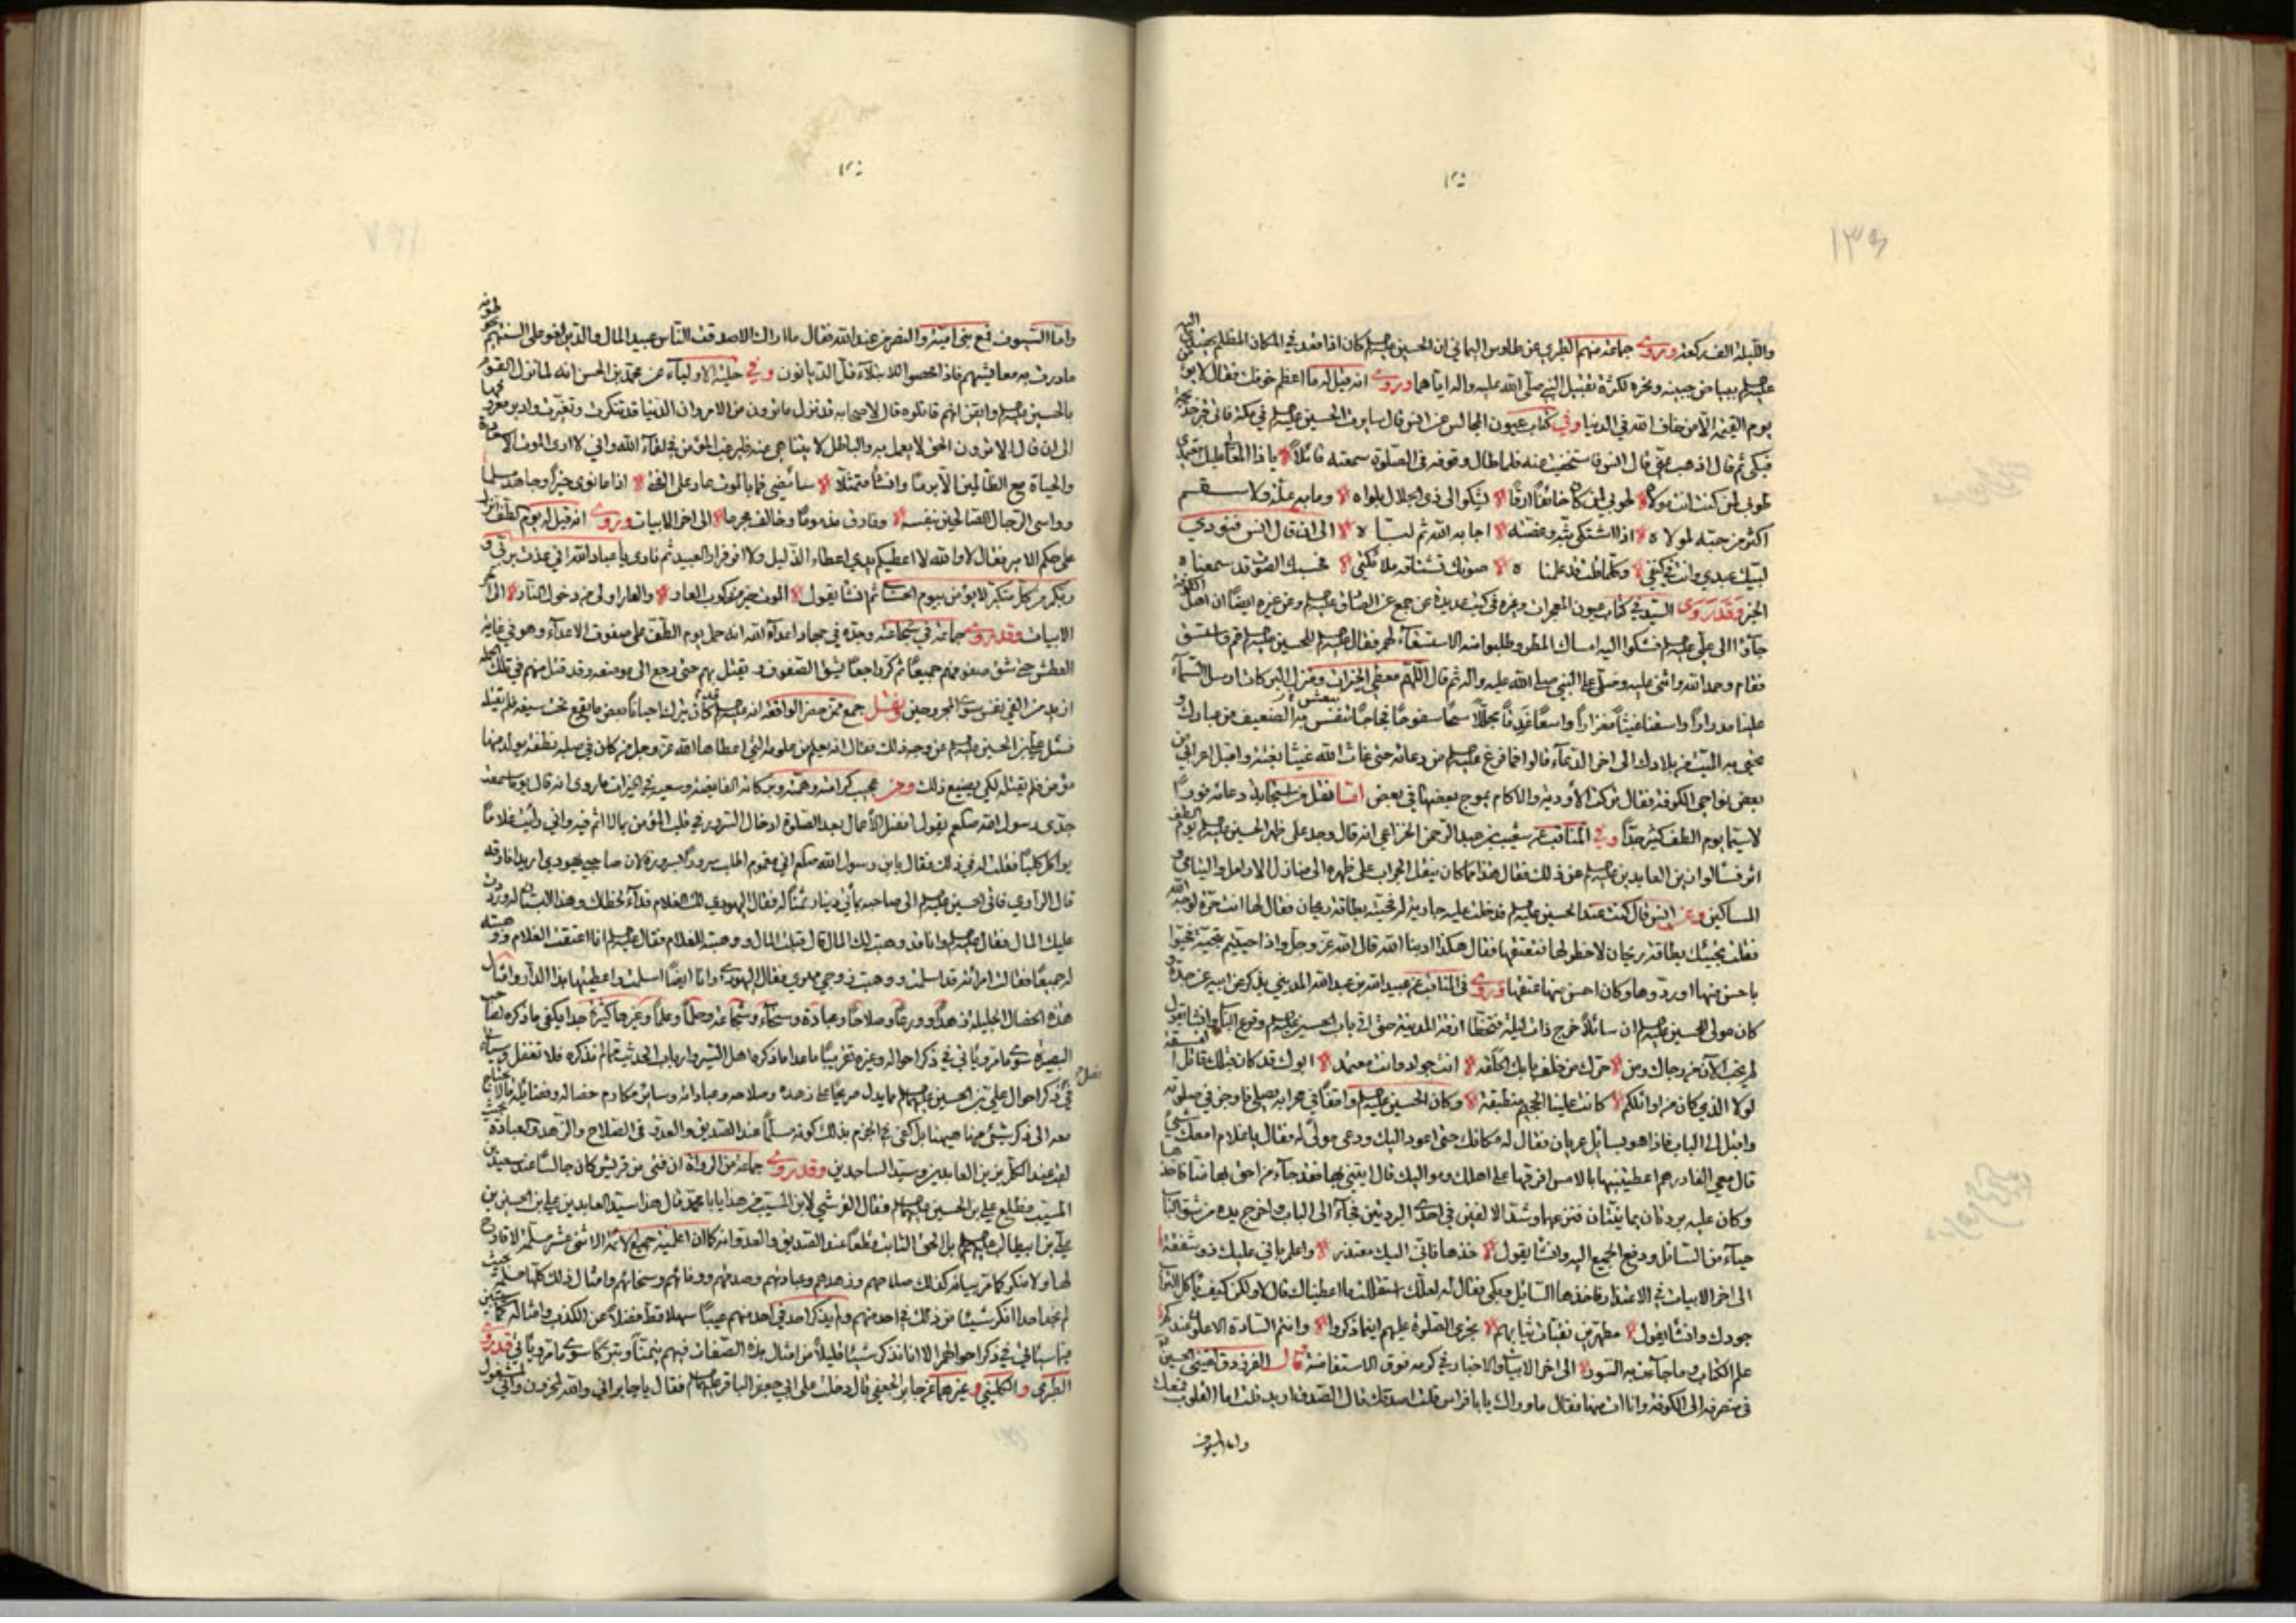 ١٣٥
والليلة الف ركعة وروى جماعة منهم الطبري عن طاوس اليماني ان الحسين عليه السلم كان اذا قعد في المكان المظلم يهتدي اليه
عليه السلم ببياض جبينه ونحره لكثرة تقبيل النبي صلى الله عليه واله اياهما وروى انه قيل له ما اعظم خوفك فقال لا يؤمن
يوم القيمة الا من خاف الله في الدنيا وفي كتاب عيون المجالس عن انس قال سايرت الحسين عليه السلم في مكة فاتى قبر خديجة
فبكى ثم قال اذهب عني قال انس فاستخفيت عنه فلما طال وقوفه في الصلوة سمعته قائلا يا ذا المعالي عليك معتمدي
طوبى لمن كنت انت مولاه طوبى لمن كان خائفا ارقا يشكو الى ذي الجلال بلواه وما به علة ولا سقم
اكثر من حبه لمولاه اذا اشتكى بثه وغصته اجابه الله ثم لباه الى ان قال انس فنودي
لبيك عبدي وانت في كنفي وكلما قلت قد علمناه صوتك تشتاقه ملائكتي فحسبك الصوت قد سمعناه
الخبر وقد روى السيد في كتاب عيون المعجزات وغيره في كتب عديدة عن جمع عن الصادق عليه السلم وعن غيره ايضا ان اهل الكوفة
جاؤا الى علي عليه السلم فشكوا اليه امساك المطر وطلبوا منه الاستسقاء لهم فقال عليه السلم للحسين عليه السلم قم واستسق
فقام وحمد الله واثنى عليه وصلى على النبي صلى الله عليه واله ثم قال اللهم معطي الخيرات ومنزل البركات ارسل السماء
علينا مدرارا واسقنا غيثا مغزارا واسعا غدقا مجللا سحا سفوحا فجاجا تنفس به الضعيف من عبادك و
تحيي به الميت من بلادك الى اخر الدعاء قالوا فما فرغ عليه السلم من دعائه حتى غاث الله غيثا بغتة واقبل اعرابي من
بعض نواحي الكوفة فقال تركت الأودية والاكام يموج بعضها في بعض اقول استجابة دعائه
لاسيما يوم الطف كثير جدا وفي المناقب عن شعيب بن عبد الرحمن الخزاعي انه قال وجد على ظهر الحسين عليه السلم يوم الطف
اثر فسالوا زين العابدين عليه السلم عن ذلك فقال هذا مما كان ينقل الجراب على ظهره الى منازل الارامل واليتامى و
المساكين وعن انس قال كنت عند الحسين عليه السلم فدخلت عليه جارية فحيته بطاقة ريحان فقال لها انت حرة لوجه الله
فقلت تحييك بطاقة ريحان لا خطر لها فتعتقها فقال هكذا ادبنا الله قال الله عز وجل واذا حييتم بتحية فحيوا
باحسن منها او ردوها وكان احسن منها عتقها وروى في المناقب عن عبيد الله بن عبد الله المديني يذكر عن ابيه عن جده و
كان مولى للحسين عليه السلم ان سائلا خرج ذات ليلة فتخطا ازقة المدينة حتى اتى باب الحسين عليه السلم وقرع الباب وانشأ يقول
لم يخب الآن من رجاك ومن حرك من خلف بابك الحلقة انت جواد وانت معتمد ابوك قد كان قاتل الفسقة
لولا الذي كان من اوائلكم كانت علينا الجحيم منطبقة وكان الحسين عليه السلم واقفا في محرابه يصلي فاوجز في صلوته
واقبل الى الباب فاذا هو بسائل عريان فقال له مكانك حتى اعود اليك ودعى مولى له فقال يا غلام امعك شيء
قال معي الفا درهم اعطيتنيها بالامس افرقها على اهلك ومواليك قال ايتني بها فقد جاء من احق بها منا فاخذها
وكان عليه بردتان يمانيتان فنزعهما وشد الالفين في احدى البردتين فجاء الى الباب واخرج يده من شق الباب
حياء من السائل ودفع الجميع اليه وانشأ يقول خذها فاني اليك معتذر واعلم باني عليك ذو شفقة
الى اخر الابيات في الاعتذار فاخذها السائل وبكى فقال له لعلك استقللت ما اعطيناك قال لا ولكن كيف ياكل التراب
جودك وانشأ يقول مطهرون نقيات ثيابهم تجري الصلوة عليهم اينما ذكروا وانتم السادة الاعلون عندكم
علم الكتاب وما جاءت به السور الى اخر الابيات والاخبار في كرمه فوق الاستفاضة قال الفرزدق لقيني الحسين عليه السلم
في منصرفه الى الكوفة وانا ات منها فقال ما وراك يا با فراس قلت اصدقك قال الصدق اريد قلت اما القلوب فمعك
واما السيوف
واما السيوف فمع بني امية والنصر من عند الله فقال ما اراك الا صدقت الناس عبيد المال والدين لغو على السنتهم يحوطونه
ما درت به معايشهم فاذا محصوا للابتلاء قل الديانون وفي حلية الاولياء عن محمد بن الحسن انه لما نزل القوم
بالحسين عليه السلم وايقن انهم قاتلوه قال لاصحابه قد نزل ما ترون من الامر وان الدنيا قد تنكرت وتغيرت وادبر معروفها
الى ان قال الا ترون الحق لا يعمل به والباطل لا يتناهى عنه فليرغب المؤمن في لقاء الله واني لا ارى الموت الا سعادة
والحياة مع الظالمين الا برما وانشأ متمثلا سأمضي فما بالموت عار على الفتى اذا ما نوى خيرا وجاهد مسلما
وواسى الرجال الصالحين بنفسه وفارق مذموما وخالف مجرما الى اخر الابيات وروى انه قيل له يوم الطف انزل
على حكم الامير فقال لا والله لا اعطيكم بيدي اعطاء الذليل ولا افر فرار العبيد ثم نادى يا عباد الله اني عذت بربي و
ربكم من كل متكبر لا يؤمن بيوم الحساب ثم انشأ يقول الموت خير من ركوب العار والعار اولى من دخول النار الى اخر
الابيات وقد روى جماعة في شجاعته وجده في جهاد اعداء الله انه حمل يوم الطف على صفوف الاعداء وهو في غاية
العطش حتى شق صفوفهم جميعا ثم كر راجعا يشق الصفوف ويقتل بهم حتى رجع الى موضعه وقد قتل منهم في تلك الحملة
ازيد من الفي نفس سوى المجروحين ونقل جمع ممن حضر الواقعة انه عليه السلم كان يترك احيانا بعض ما يقع تحت سيفه فلم يقتله
فسئل علي بن الحسين عليه السلم عن وجه ذلك فقال انه عليه السلم من علومه التي اعطاها الله عز وجل من كان في صلبه نطفة يولد منها
مؤمن فلم يقتله لكي يضيع ذلك ومن عجيب كراماته وهمته وبركاته الفايضة وسعيه في الخيرات ما روى انه قال يوما سمعت
جدي رسول الله صلعم يقول افضل الأعمال بعد الصلوة ادخال السرور في قلب المؤمن بما لا اثم فيه واني رأيت غلاما
يواكل كلبا فقلت له في ذلك فقال يا بن رسول الله صلعم اني مغموم اطلب سرورا بسروره لان صاحبي يهودي اريد افارقه
قال الراوي فاتى الحسين عليه السلم الى صاحبه بمأتي دينار ثمنا له فقال اليهودي لك الغلام فداء لخطاك وهذا البستان له ورددت
عليك المال فقال عليه السلم وانا قد وهبت لك المال قال قبلت المال ووهبته للغلام فقال عليه السلم انا اعتقت الغلام ووهبته
له جميعا فقالت امرأته قد اسلمت ووهبت زوجي مهري فقال اليهودي وانا ايضا اسلمت واعطيتها هذا الدار وامثال
هذه الخصال الجليلة زهدا وورعا وصلاحا وعبادة وسخاء وشجاعة وحلما وعلما وغيرها كثيرة جدا يكفي ما ذكر لصاحب
البصيرة سوى ما مر وياتي في ذكر احواله وغيره تقريبا ما عدا ما ذكره اهل السير وارباب الحديث مما لم نذكره فلا تغفل وسيأتي
في ذكر احوال علي بن الحسين عليهما السلم ما يدل صريحا على زهده وصلاحه وعباداته وساير مكارم خصاله وفضائله ما لا يحتاج
معه الى ذكر شيء منها هيهنا بل كفى في الجزم بذلك كونه مسلما عند الصديق والعدو في الصلاح والزهد والعبادة بحيث
لقب عند الكل بزين العابدين وسيد الساجدين وقد روى جماعة من الرواة ان فتى من قريش كان جالسا عند سعيد بن
المسيب فطلع علي بن الحسين عليهما السلم فقال القرشي لابن المسيب من هذا يا با محمد قال هذا سيد العابدين علي بن الحسين بن
علي بن ابيطالب عليهم السلم بل الحق الثابت قطعا عند الصديق والعدو انه كان اعلمية جميع الأئمة الاثني عشر مسلمة لا قادح
لها ولا منكر كما مر بيانه كذلك صلاحهم وزهدهم وعبادتهم وصدقهم ووفائهم وسخائهم وامثال ذلك كلها مسلمة بحيث
لم نجد احدا انكر شيئا من ذلك في احد منهم ولم يذكر احد في احد منهم عيبا سهلا قط فضلا عن الكذب وامثاله كما سيتبين
فيما سيأتي في ذكر احوالهم الا انا نذكر شيئا قليلا من امثال هذه الصفات فيهم تيمنا وتبركا سوى ما مر وياتي فقد روى
الطبري والكليني وغيرهما عن جابر الجعفي قال دخلت على ابي جعفر الباقر عليه السلم فقال يا جابر اني والله لمحزون واني لمشغول